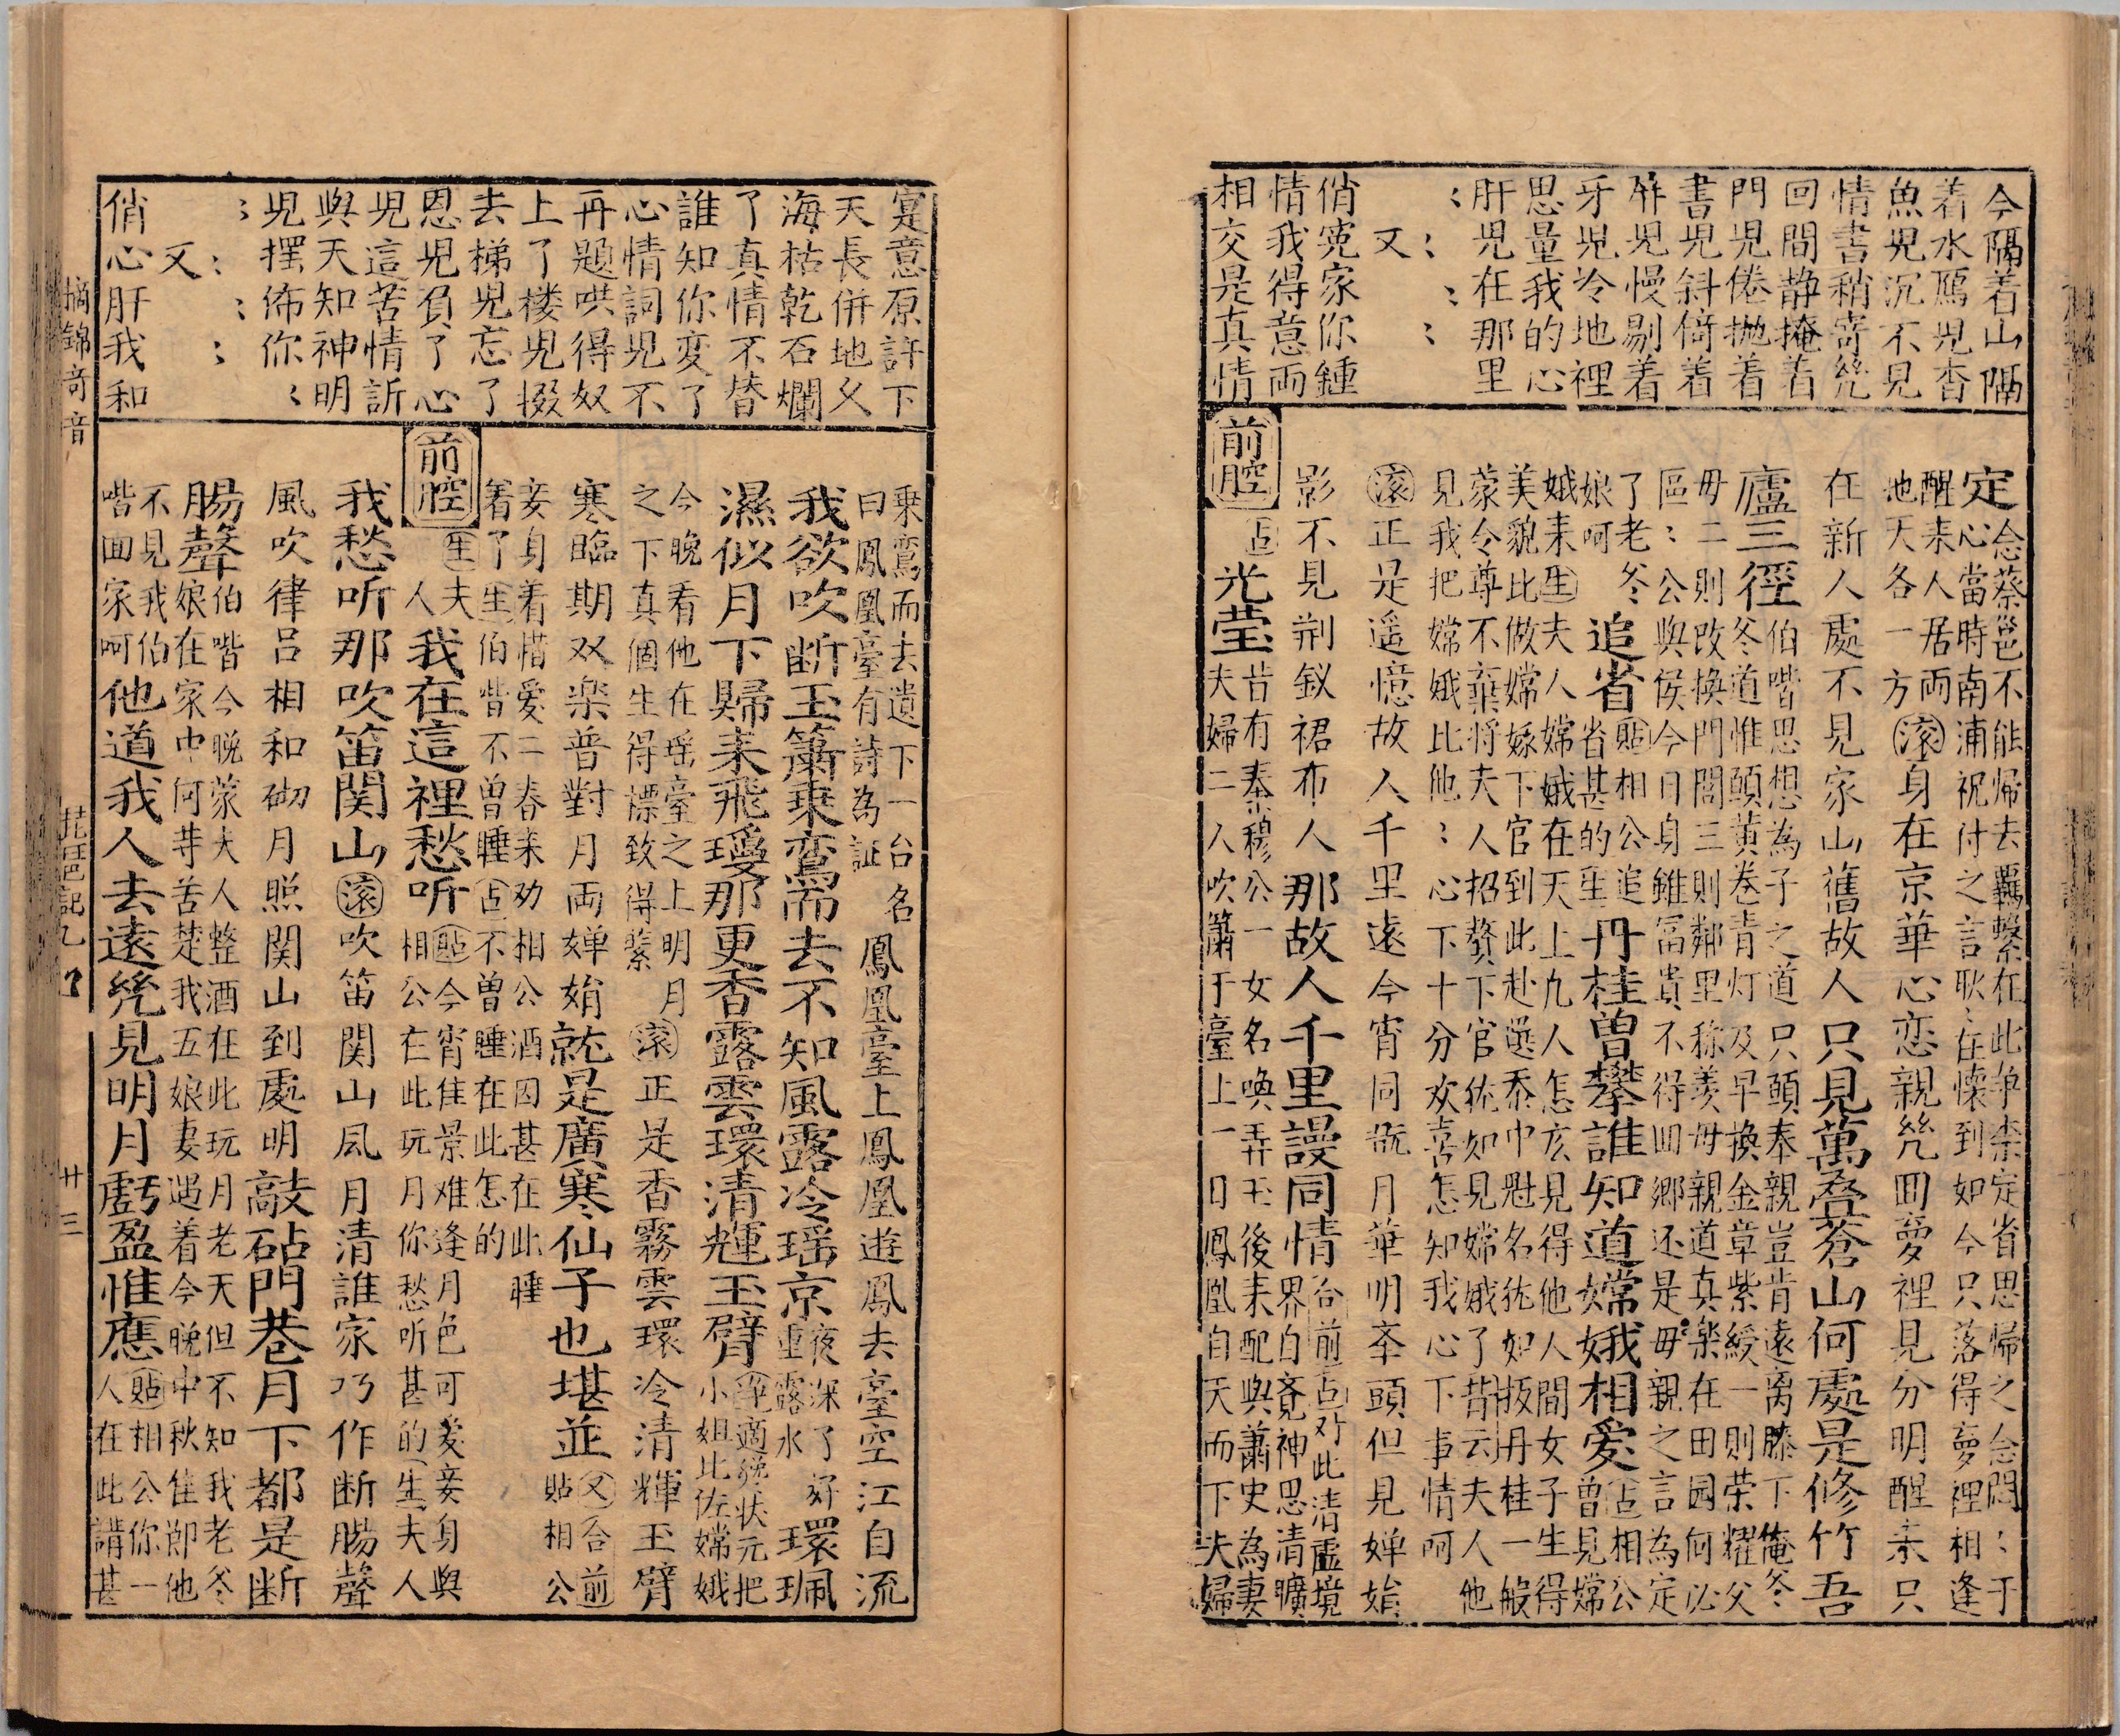 今隔着山隔
着水鴈児杳
魚児沉不見
情書稍寄幾
回間静掩着
門児倦抛着
書児斜倚着
牙児冷地裡
思量我的心
肝児在那里
又
俏冤家你鍾
情我得意両
相交是真情
定
念蔡邕不能帰去羈繫在此争柰定省思帰之念悶：于
心當時南浦祝付之言耿：在懐到如今只落得夢裡相逢
醒来人居両
地天各一方
滚身在京華心恋親幾囬夢裡見分明醒来只
在新人處不見家山舊故人只見萬叠蒼山何處是修竹吾
廬三徑
伯喈思想為子之道只願奉親豈肯遠离膝下俺爹
爹道惟願黄巻青灯及早換金章紫綬一則荣耀父
母二則改換門閭三則鄰里称羡母親道真楽在田园何必
區：公與侯今日身雖冨貴不得囬郷还是母親之言為定
了老爹
娘呵
追省
貼相公追
省甚的生
丹桂曽攀誰知道嫦娥相爱
占相公
曽見嫦
娥来生夫人嫦娥在天上凢人怎亥見得他人間女子生得
美貌比做嫦娥下官到此赴選忝中魁名
蒙令尊不棄将夫人招贅下官
見我把嫦娥比他：心下十分欢喜怎知我心下事情呵
滚正是遥憶故人千里遠今宵同玩月華明
頭但見婵娟
影不見荆釵裙布人那故人千里謾同情
合前占
此清虚境
界
神思清曠
前腔
占光莹
昔有秦穆公一女名喚弄玉後来配與蕭史為妻
夫婦二人吹簫于臺上一日鳳凰自天而下夫婦
寔意原許下
天長併地久
海枯乾石爛
了真情不替
誰知你変了
心情詞児不
再題哄得奴
上了楼児掇
去梯児忘了
恩児負了心
児這苦情訴
與天知神明
児擇佈你：
：：：
又
俏心肝我和
乗鸞而去遺下一台名
曰鳳凰臺有詩為証
鳳凰臺上鳳凰遊鳳去臺空江自流
我欲吹断玉簫乗鸞而去不知風露冷瑶京
夜深了好
重露水
環珮
濕似月下歸来飛瓊那更香露雲環清輝玉臂
小姐比佐嫦娥
今晩看他在瑶臺之上明月
之下真個生得標致得緊
滚正是香霧雲環冷清輝玉臂
寒臨期双楽普對月両婵娟就是廣寒仙子也堪並
又合前
貼相公
妾身着惜愛二春来劝相公酒因甚在此睡
着了生伯喈不曽睡占不曽睡在此怎的
前腔
生夫
人
我在這裡愁听
貼今宵佳景难逢月色可爱妾身與
相公在此玩月你愁听甚的生夫人
我愁听那吹笛関山滚吹笛関山风月清誰家巧作断腸聲
風吹律吕相和砌月照関山到處明敲砧門巷月下都是断
腸聲
伯喈今晩蒙夫人整酒在此玩月老天但不知我老爹
娘在家中何䓁苦楚我五娘妻遇着今晩中秋佳節他
不見我伯
喈囬家呵
他道我人去遠幾見明月虧盈惟應
貼相公你一
人在此講甚
摘錦奇音
琵琶記
廿三